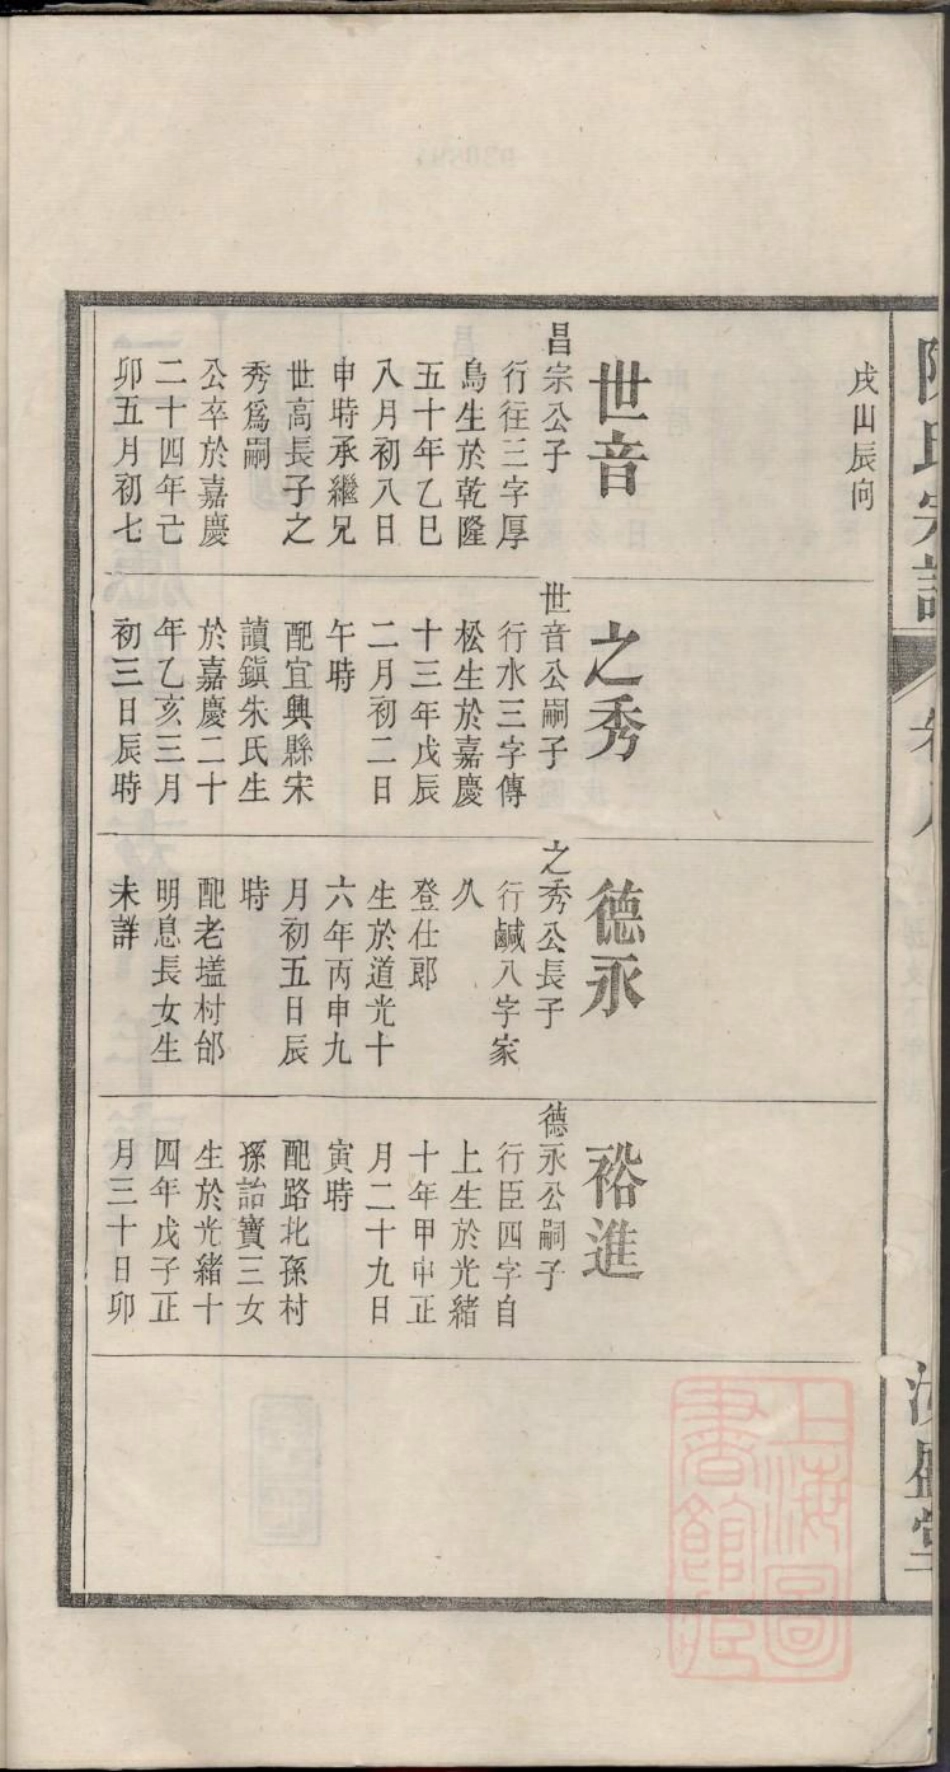 陳氏宗譜
卷八
戌山辰向
世音
昌宗公子
行往三字厚
鳥生於乾隆
五十年乙巳
八月初八日
申時承繼兄
世高長子之
秀爲嗣
公卒於嘉慶
二十四年己
卯五月初七
之秀
世音公嗣子
行水三字傳
松生於嘉慶
十三年戊辰
二月初二日
午時
配宜興縣宋
瀆鎭朱氏生
於嘉慶二十
年乙亥三月
初三日辰時
德永
之秀公長子
行鹹八字家
久
登仕郎
生於道光十
六年丙申九
月初五日辰
時
配老壒村邰
明息長女生
未詳
裕進
德永公嗣子
行臣四字自
上生於光緒
十年甲申正
月二十九日
寅時
配路北孫村
孫詒寶三女
生於光緒十
四年戊子正
月三十日卯
盛堂
上海圖
書館藏